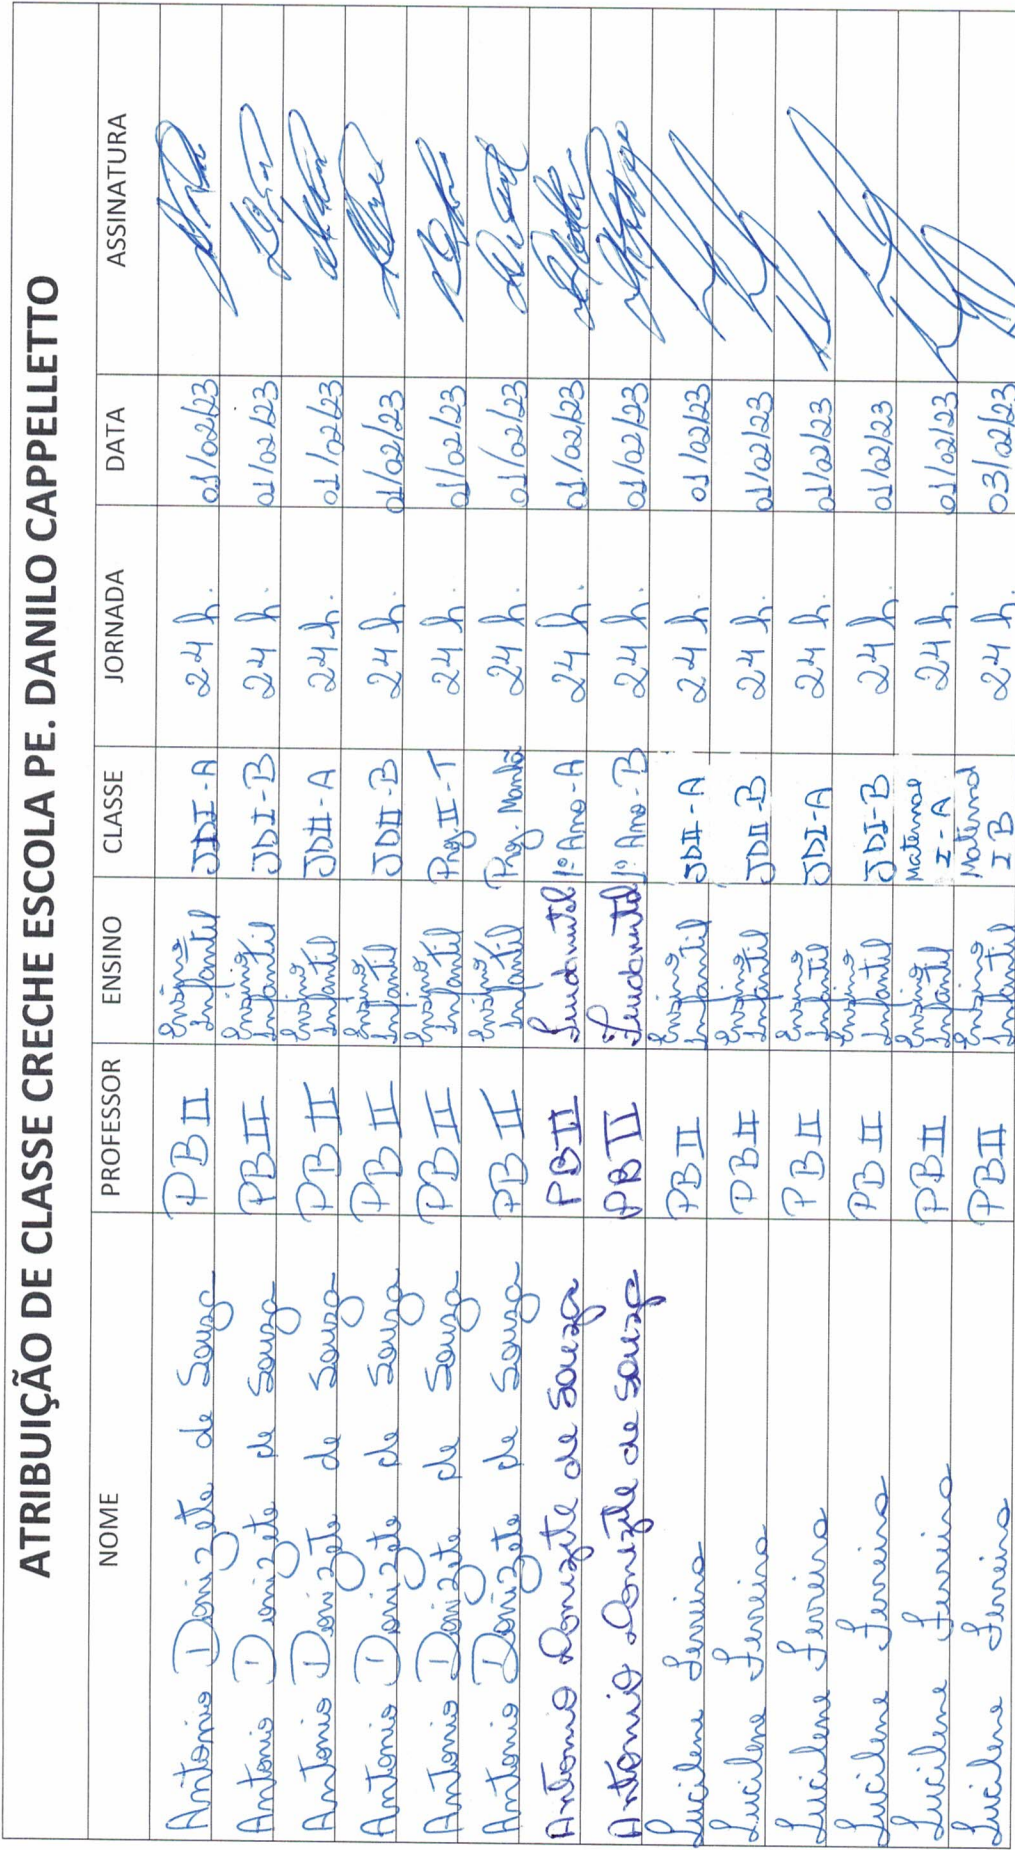 ATRIBUIÇÃO DE CLASSE CRECHE ESCOLA PE. DANILO CAPPELLETTO
NOME PROFESSOR ENSINO CLASSE JORNADA DATA ASSINATURA
Antonio Donizete de Souza PB II Ensino Infantil JDI-A 24 h. 01/02/23
Antonio Donizete de Souza PB II Ensino Infantil JDI-B 24 h. 01/02/23
Antonio Donizete de Souza PB II Ensino Infantil JDII-A 24 h. 01/02/23
Antonio Donizete de Souza PB II Ensino Infantil JDII-B 24 h. 01/02/23
Antonio Donizete de Souza PB II Ensino Infantil II-T 24 h. 01/02/23
Antonio Donizete de Souza PB II Ensino Infantil Manhã 24 h. 01/02/23
Antonio Donizete de Souza PB II Fundamental 1º Ano-A 24 h. 01/02/23
Antonio Donizete de Souza PB II Fundamental 1º Ano-B 24 h. 01/02/23
Lucilene Ferreira PB II Ensino Infantil JDII-A 24 h. 01/02/23
Lucilene Ferreira PB II Ensino Infantil JDII-B 24 h. 01/02/23
Lucilene Ferreira PB II Ensino Infantil JDI-A 24 h. 01/02/23
Lucilene Ferreira PB II Ensino Infantil JDI-B 24 h. 01/02/23
Lucilene Ferreira PB II Ensino Infantil Maternal I-A 24 h. 01/02/23
Lucilene Ferreira PB II Ensino Infantil Maternal I B 24 h. 03/02/23